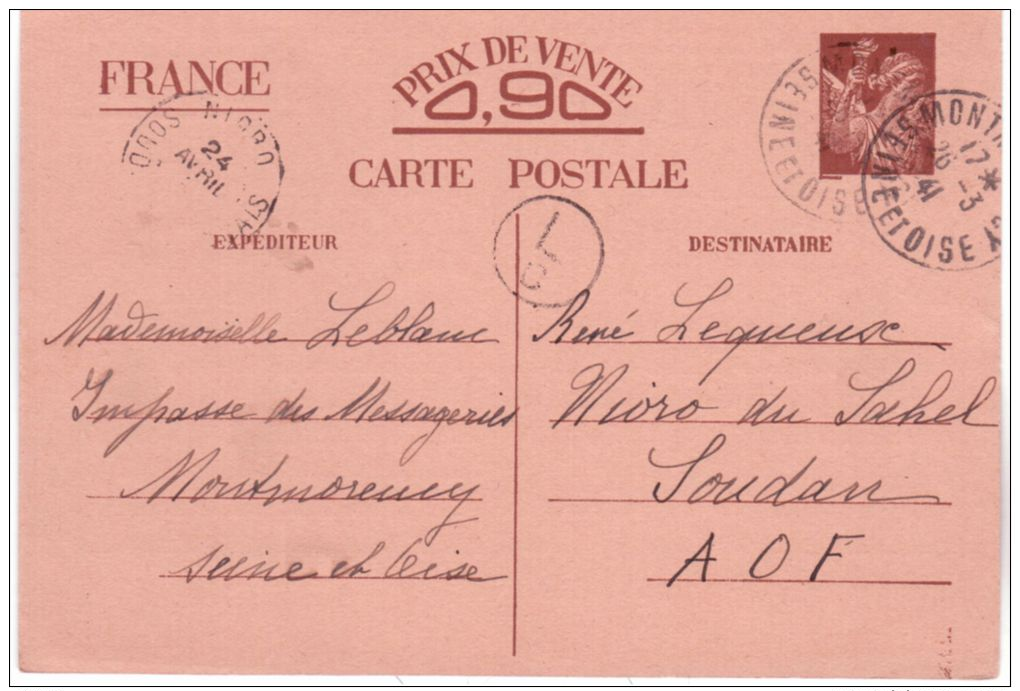 FRANCE
PRIX DE VENTE
0,90
CARTE POSTALE
NIORO
24
AVRIL
EXPÉDITEUR
DESTINATAIRE
MONTM
SEINE ET OISE
17 *
26 -3
41
SEINE ET OISE
Mademoiselle Leblanc
Impasse des Messageries
Montmorency
Seine et Oise
René Lequeux
Nioro du Sahel
Soudan
A O F